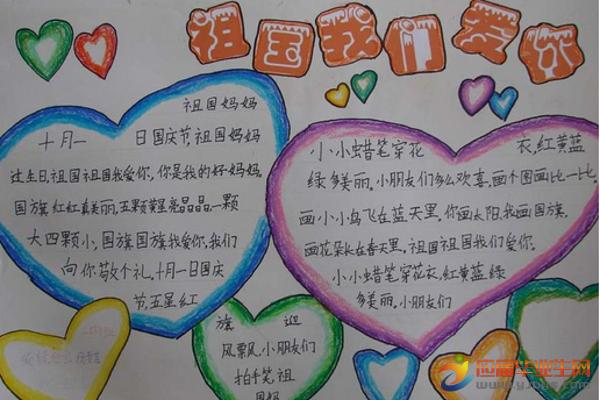 祖国我们爱你
祖国妈妈
十月一 日国庆节,祖国妈妈
过生日,祖国祖国我爱你,你是我的好妈妈.
国旗红红真美丽,五颗黄星亮晶晶,一颗
大四颗小,国旗国旗我爱你,我们
向你敬个礼.十月一日国庆
节,五星红
旗 迎
风飘风,小朋友们
拍手笑.祖
国妈
小小蜡笔穿花 衣,红黄蓝
绿多美丽.小朋友们多么欢喜.画个图画比一比.
画小小鸟飞在蓝天里.你画太阳,我画国旗.
画花朵长在春天里.祖国祖国我们爱你.
小小蜡笔穿花衣,红黄蓝绿
多美丽.小朋友们
应届毕业生网
www.yjbys.com